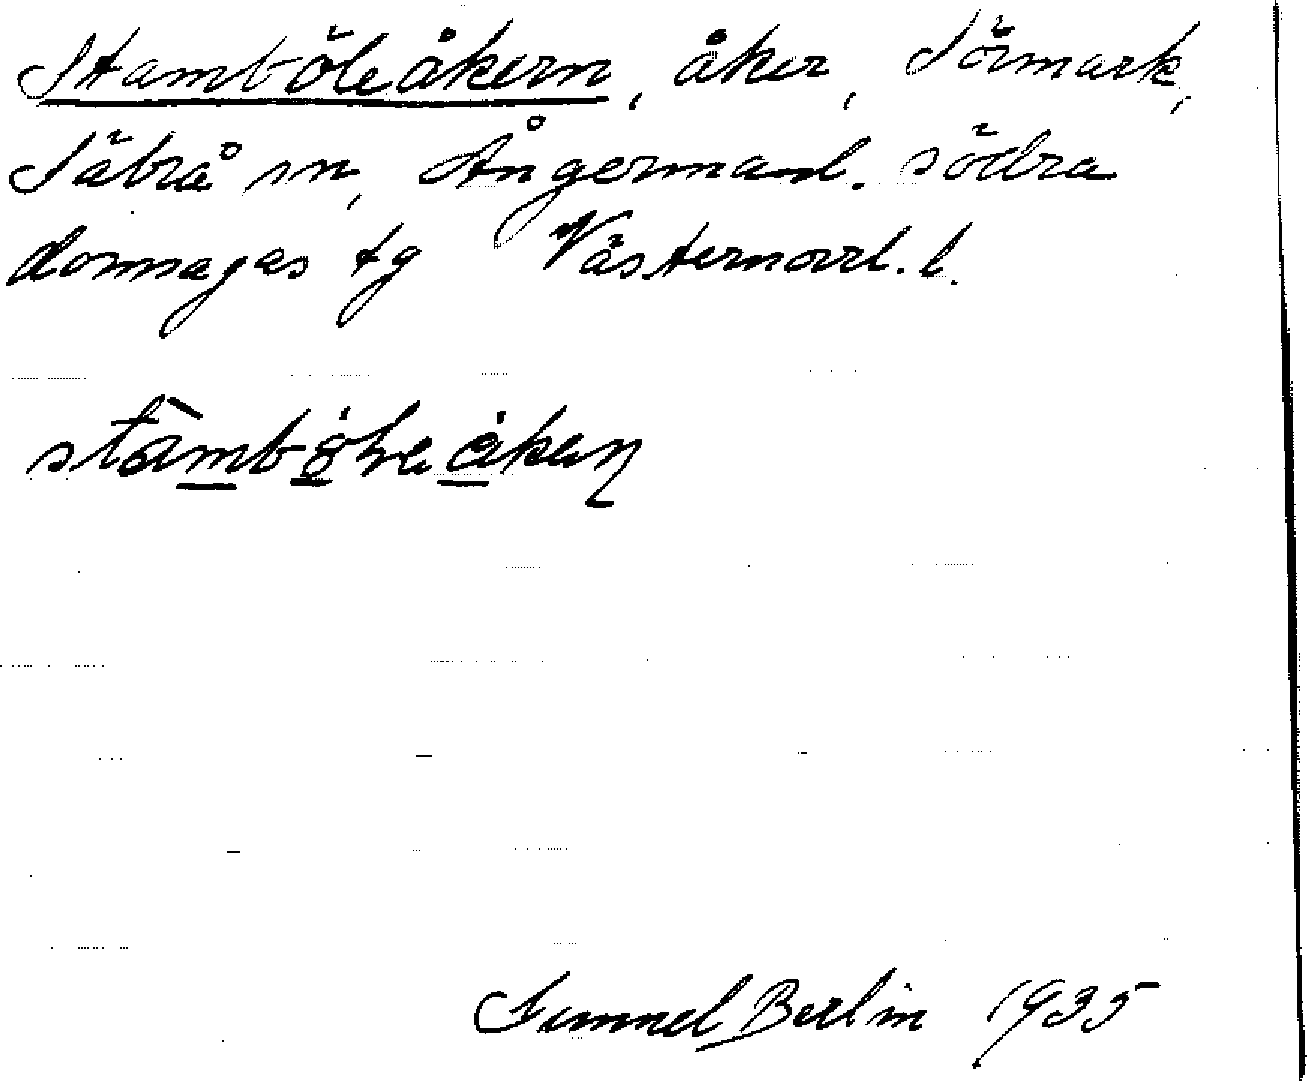 Stamböleåkern, åker, Sörmark,
Säbrå sn, Ångermanl. södra
domsagas tg Västernorrl. l.
stàmböleåken
Gunnel Berlin 1935